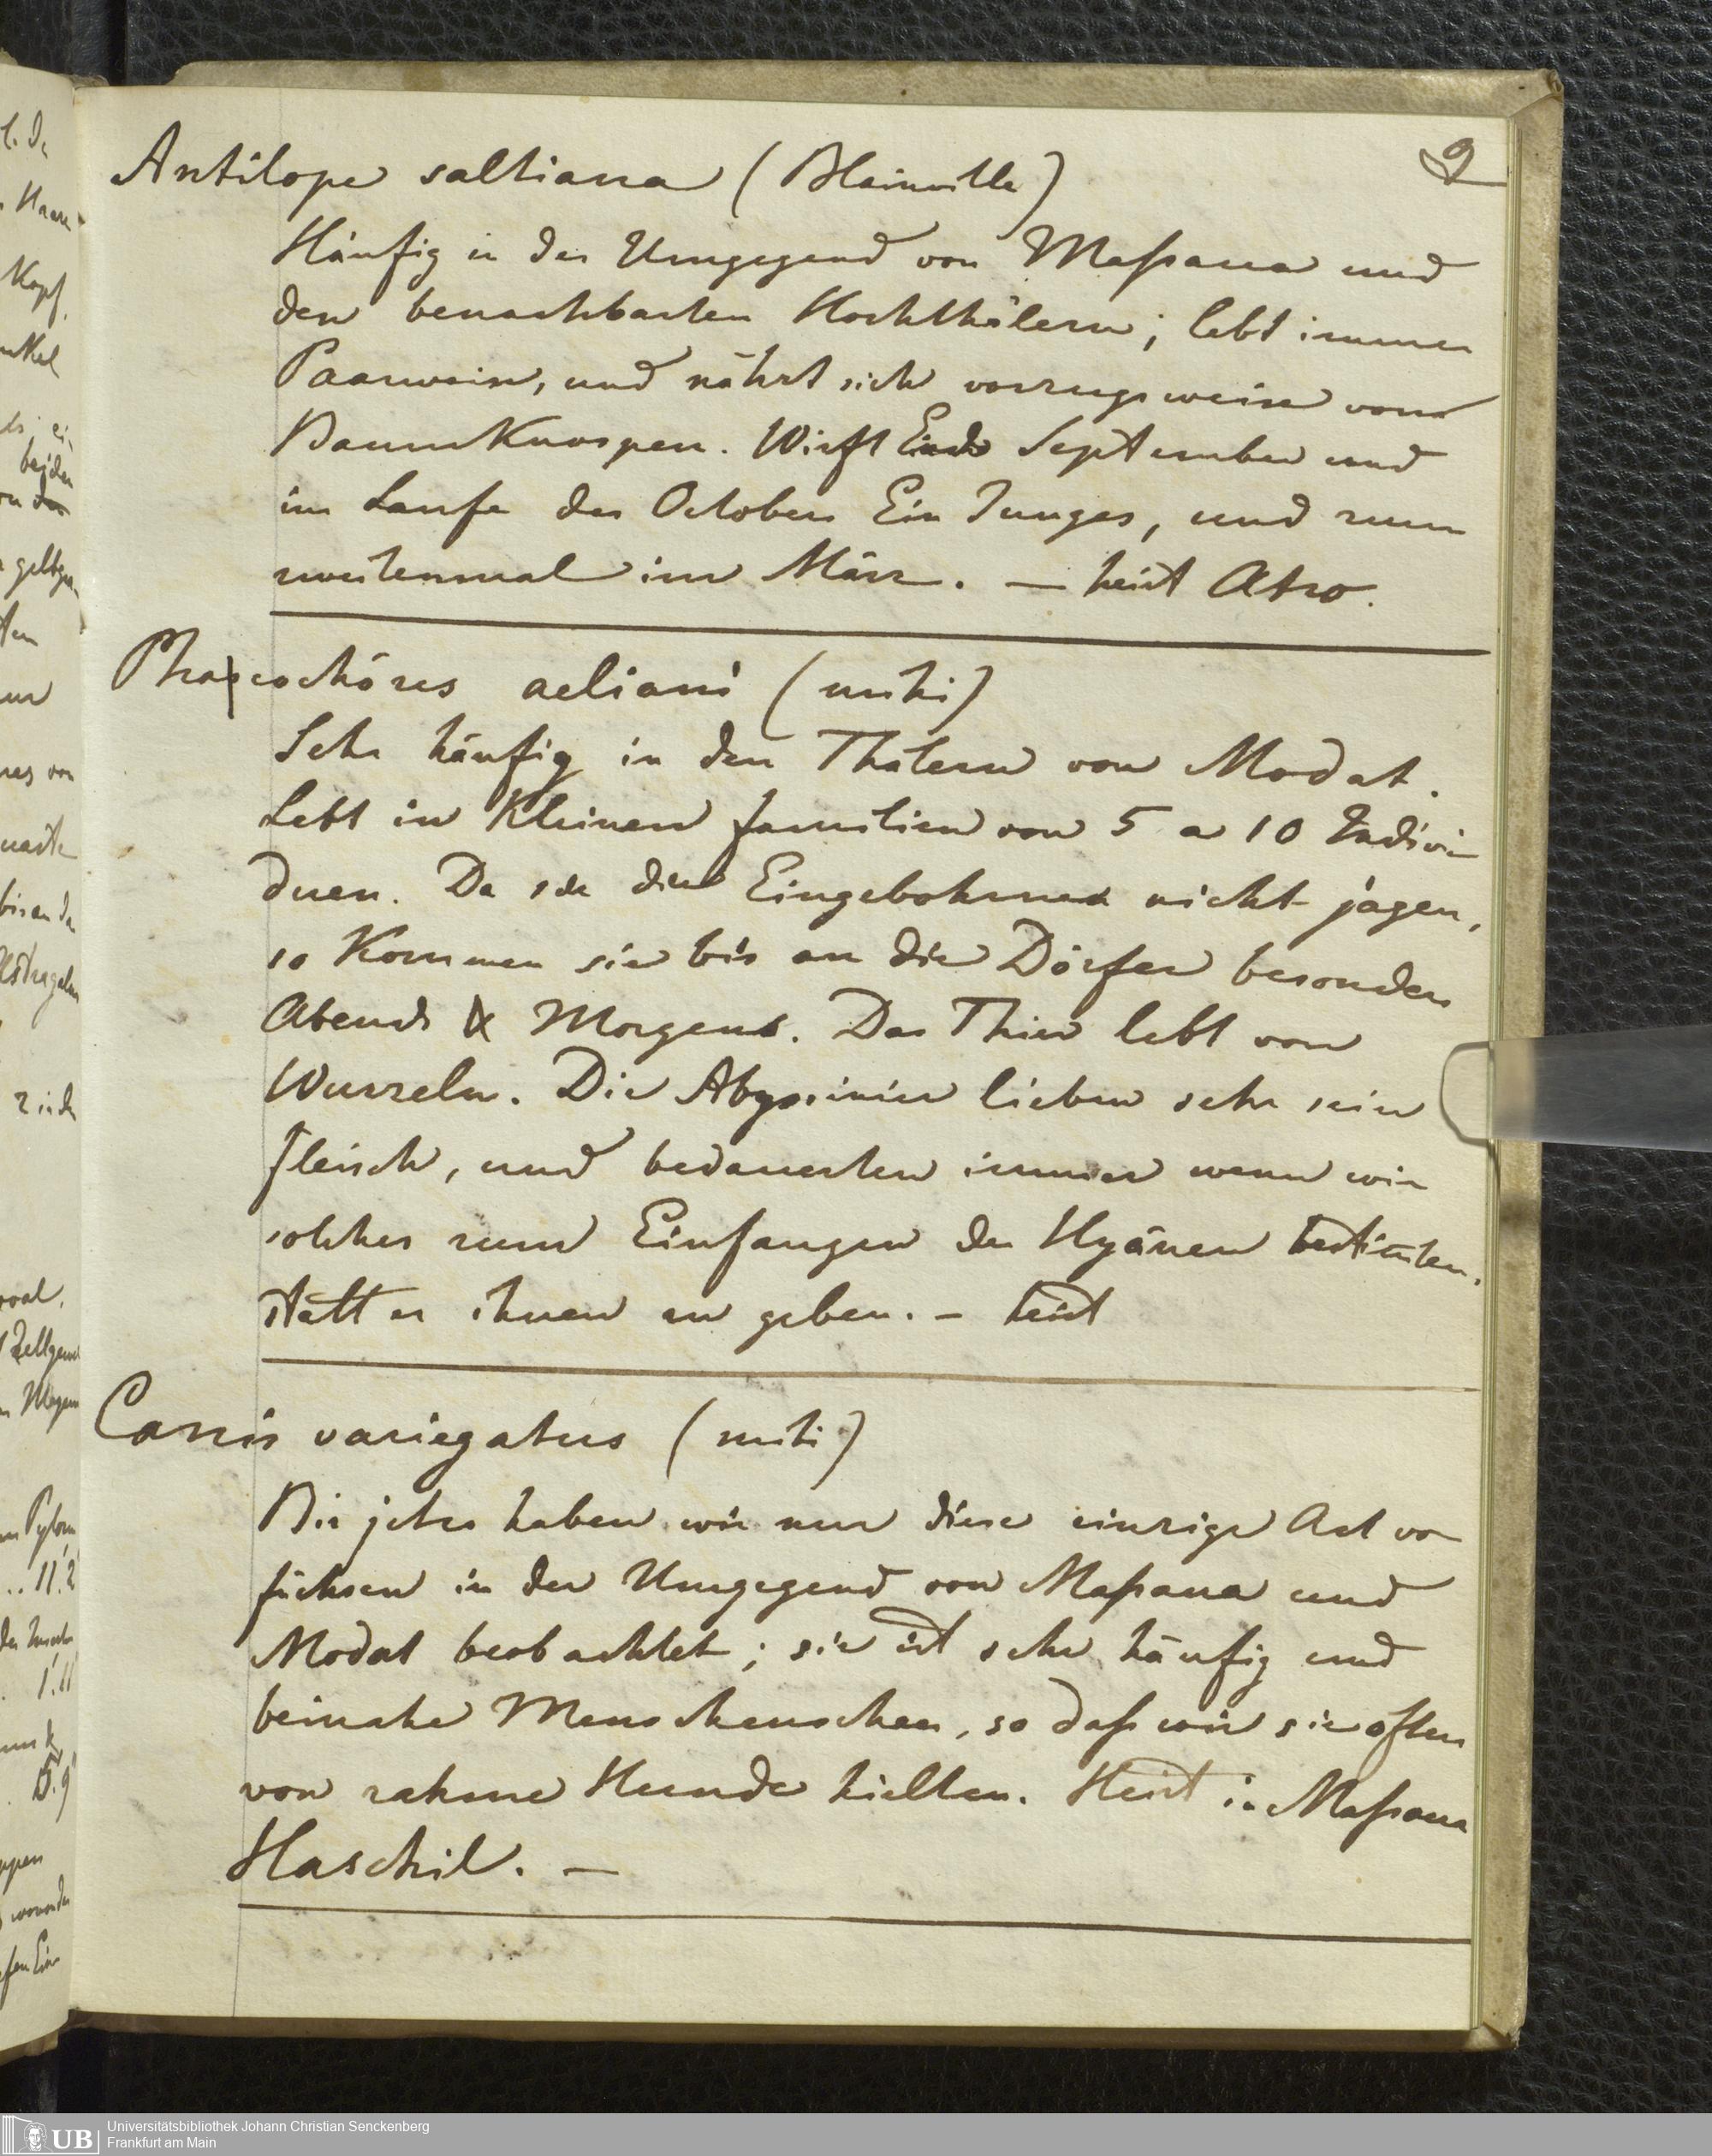 9
Antilope saltiana (Blainville)
Häufig in der Umgegend von Maßaua und
den benachbarten Hochthälern; lebt immer
Paarweise, und nährt sich vorzugsweise von
Baumknospen. Wirft Ende September und
im Laufe des Octobers Ein Junges, und zum
zweitenmal im März. — heist Atro.
Phascochöres aeliani (mihi)
Sehr häufig in den Thälern von Modat.
Lebt in Kleinen familien von 5 a 10 Indivi
duen. Da sie die Eingebohrnen nicht jagen,
so Kommen sie bis an die Dörfer besonders
Abends & Morgens. Das Thier lebt von
Wurzeln. Die Abyssinier lieben sehr sein
fleisch, und bedauerten immer wenn wir
solches zum Einfangen der Hyänen bestimten.
statt es ihnen zu geben. – heist
Canis variegatus (mihi)
Bis jetzo haben wir nur diese einzige Art von
füchsen in der Umgegend von Maßaua und
Modat beobachtet; sie ist sehr häufig und
beinahe Menschenscheu, so daß wir sie öfters
von zahme Hunde hielten. Heist in Maßaua
Haschil. —
Universitätsbibliothek Johann Christian Senckenberg
Frankfurt am Main
UB